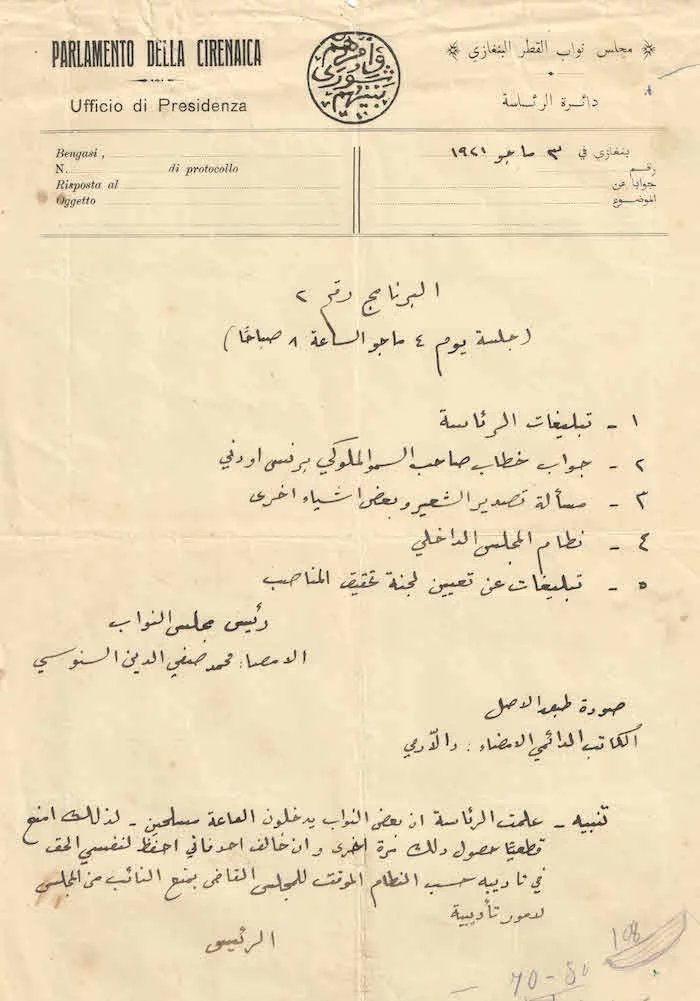 PARLAMENTO DELLA CIRENAICA
Ufficio di Presidenza
وأمرهم شورى بينهم
مجلس نواب القطر البنغازي
دائرة الرئاسة
Bengasi,
N. di protocollo
Risposta al
Oggetto
بنغازي في ٣ مايو ١٩٢١
رقم
جوابا عن
الموضوع
البرنامج رقم ٢
(جلسة يوم ٤ مايو الساعة ٨ صباحًا)
١ - تبليغات الرئاسة
٢ - جواب خطاب صاحب السمو الملوكي برنس اودني
٣ - مسألة تصدير الشعير وبعض اشياء اخرى
٤ - نظام المجلس الداخلي
٥ - تبليغات عن تعيين لجنة تحقيق المناصب
رئيس مجلس النواب
الامضا: محمد صفي الدين السنوسي
صورة طبق الاصل
الكاتب الدائمي الامضاء:
تنبيه - علمت الرئاسة ان بعض النواب يدخلون القاعة مسلحين - لذلك امنع
قطعيًا حصول ذلك مرة اخرى وان خالف احد فاني احفظ لنفسي الحق
في تاديبه حسب النظام الموقت للمجلس القاضي بمنع النائب من المجلس
لامور تأديبية
الرئيس
108
70-80